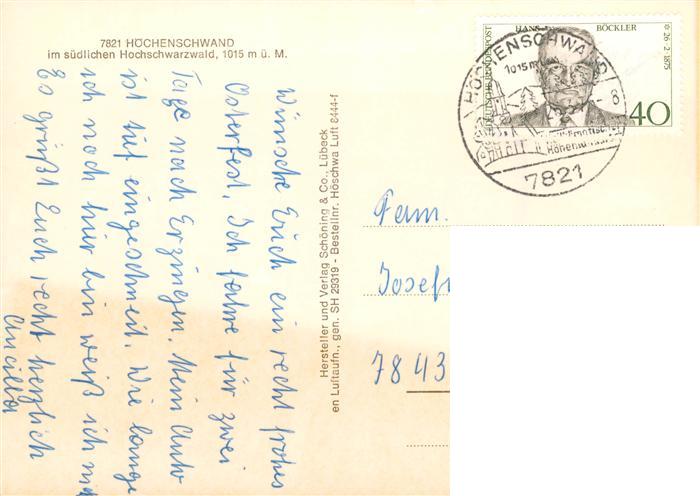 7821 HÖCHENSCHWAND
im südlichen Hochschwarzwald, 1015 m ü. M.
Wünsche Euch ein recht frohes
Osterfest. Ich fahre für zwei
Tage nach Erzingen. Mein Auto
ist tief eingeschneit. Wie lange
ich noch hier bin weiß ich
Es grüßt Euch recht herzlich
Ancilla
Hersteller und Verlag Schöning & Co., Lübeck
en Luftaufn., gen. SH 29319 - Bestellnr. Höschwa Luft 8444-f
HANS BÖCKLER
* 26·2·1875
DEUTSCHE BUNDESPOST
40
HÖCHENSCHWAND
1015 m
8
7821
Fam.
Josef
7843